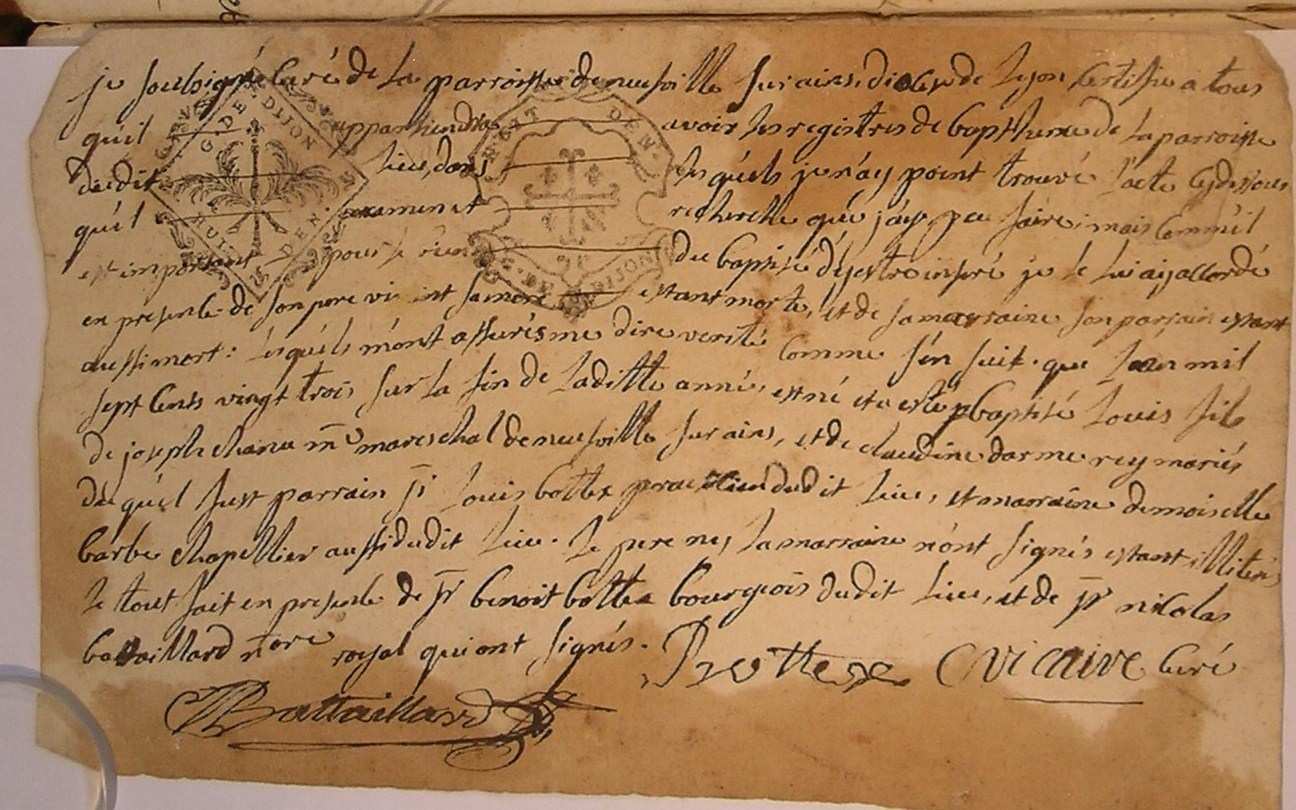 je soubsigné Curé de la parroisse de neufville sur ains, diocese de Lyon Certifie a tous
qu'il appartiendra avoir les registres de baptheme de la parroisse
dudit lieu, dans lesquels je n'ay point trouvé l'acte cydessous
qu'il examiné recherche que j'aye peu faire; mais Comm'il
est important pour le du baptisé d'estre inseré je le lui ay accordé
en presence de son pere vivint sa mere estant morte, et de sa marraine son parrain estant
aussi mort: lesquels m'ont assurés me dire verité Comme s'en suit. que L'an mil
sept Cents vingt trois sur la fin de laditte année, est né et a esté baptisé Louis fils
de joseph chanu me mareschal de neufville sur ains, et de claudine darmerey mariés
duquel fust parrain sr Louis bottex praticien dudit lieu, et marraine demoiselle
barbe chapellier aussi dudit lieu. le pere ney la marraine n'ont signés estant illiterés
le tout fait en presence de sr benoit bottex bourgeois dudit lieu, et de sr nicolas
battaillard nore royal qui ont signés. Bottex Cvicaire Curé
Battaillard
G. DE. DIJON
HUIT DEN.
HUIT DEN.
G. DE. DIJON